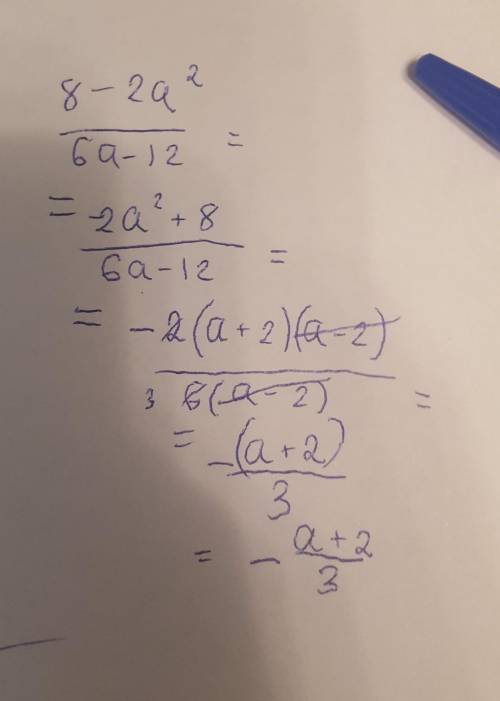 8 - 2a²
6a - 12 =
= -2a² + 8
6a - 12 =
= -2(a + 2)(a - 2)
3 6(a - 2) =
= -(a + 2)
3
= - a + 2
3